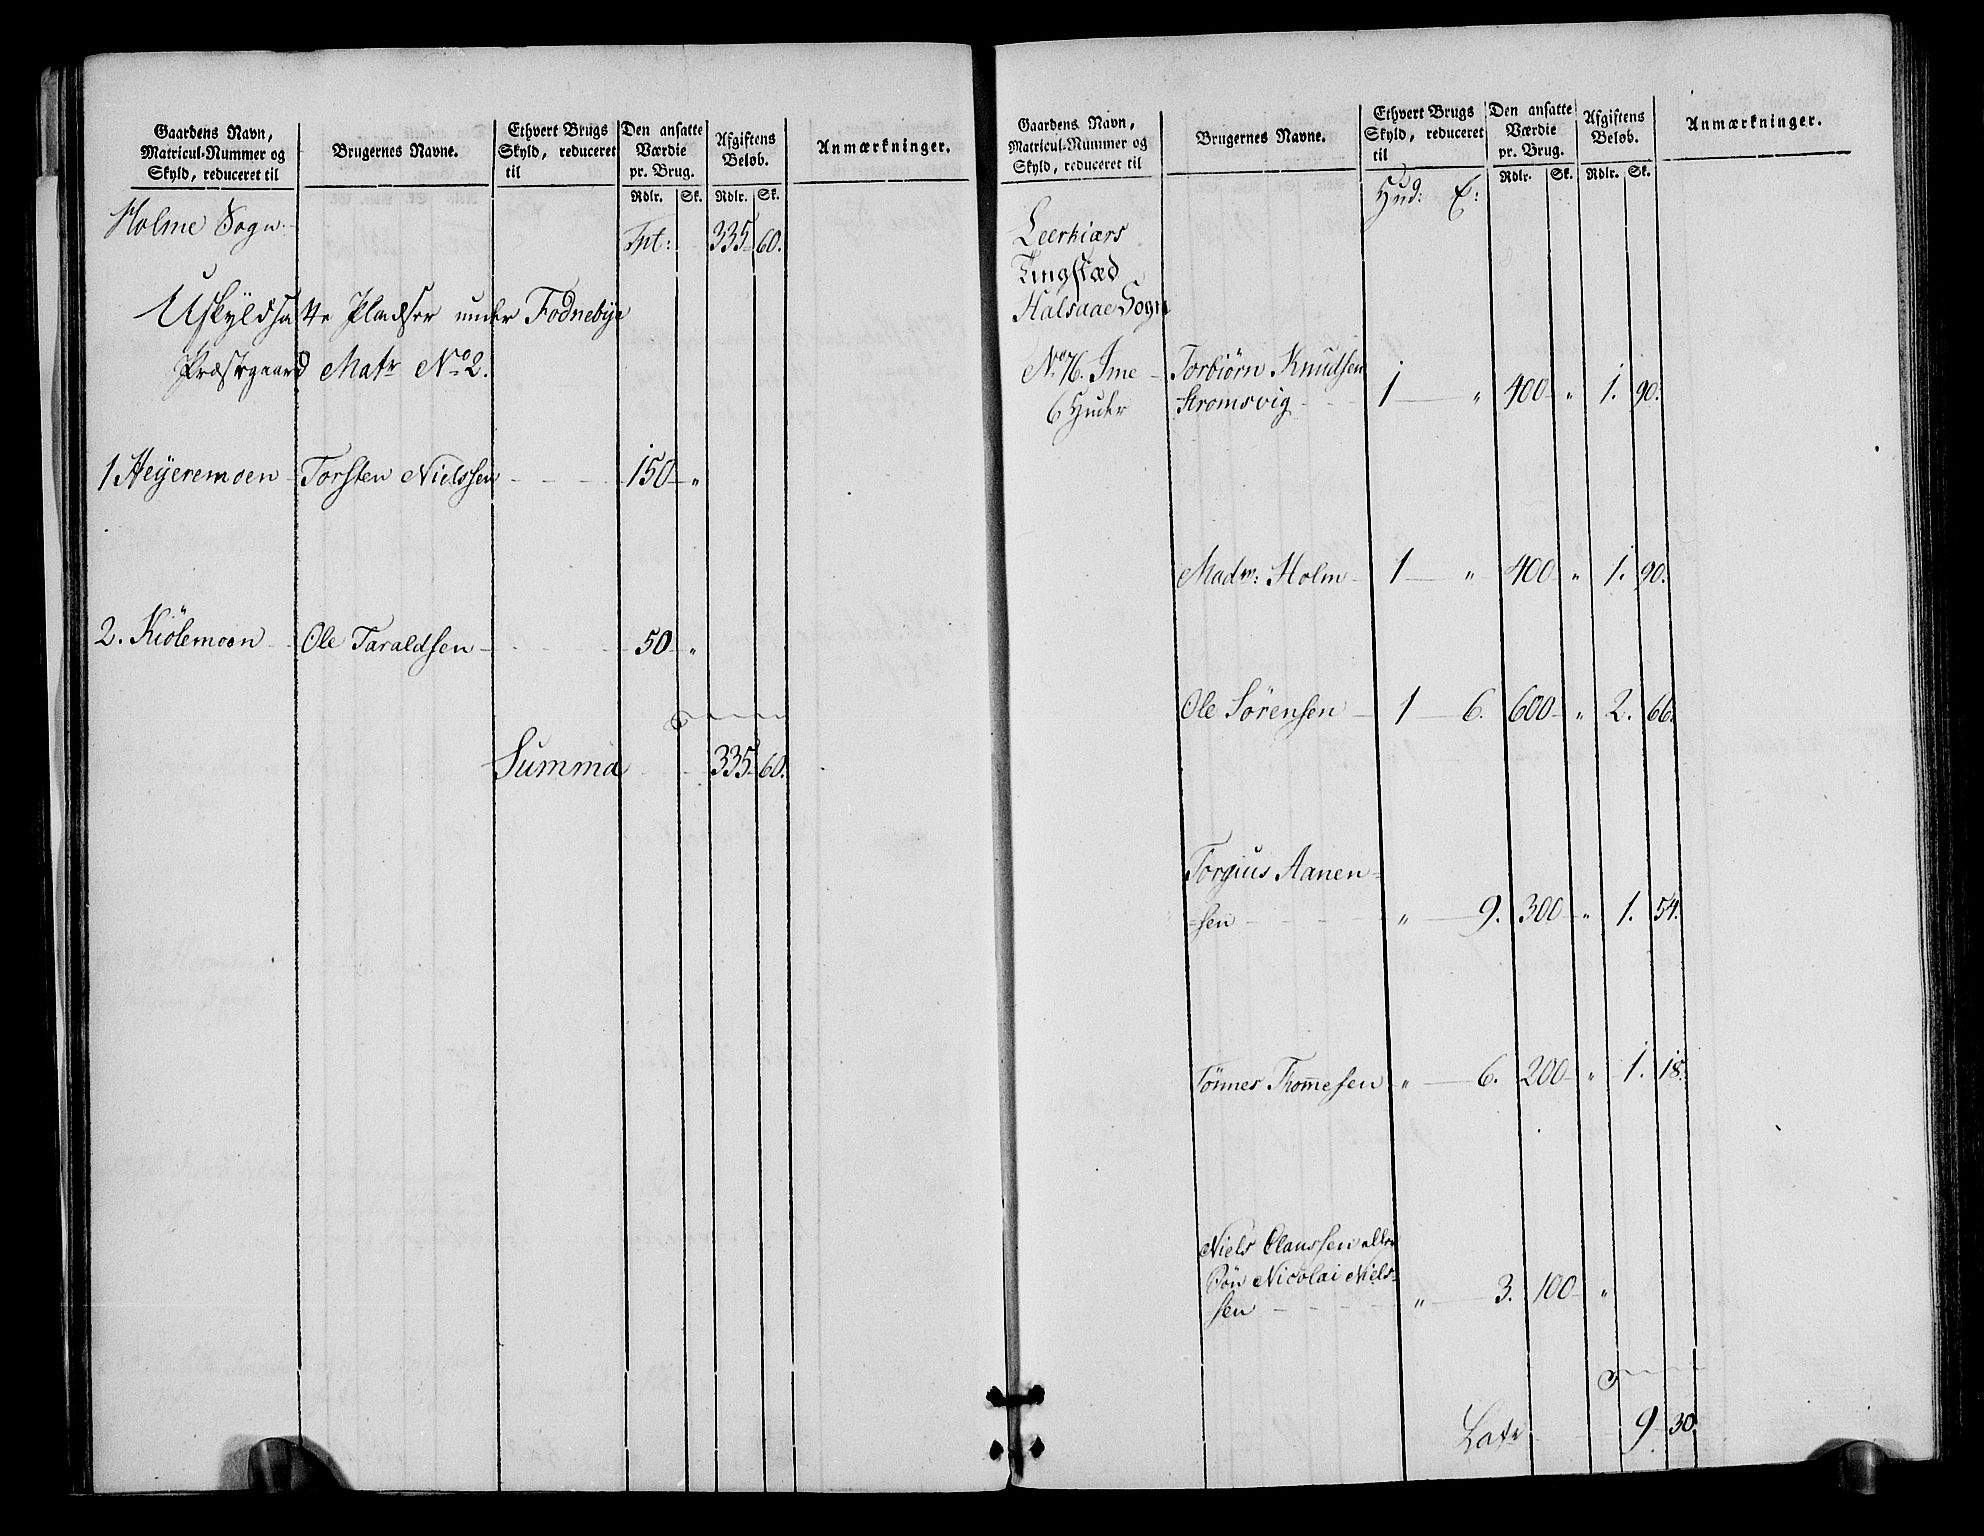 Gaardens Navn,
Matricul-Nummer og
Skyld, reduceret til
Brugernes Navne.
Ethvert Brugs
Skyld, reduceret
til
Den ansatte
Værdie
pr. Brug.
Rdlr. Sk.
Afgiftens
Beløb.
Rdlr. Sk.
Anmærkninger.
Holme Sogn. Tpt: 335 60.
Uskyldsatte Pladser under Fodnebye
Præstegaard Matr No 2.
1 Heyeremoen Torsten Nielssen 150 "
2. Kiölemoen Ole Taraldsen 50 "
Summa 335 60.
Gaardens Navn,
Matricul-Nummer og
Skyld, reduceret til
Brugernes Navne.
Ethvert Brugs
Skyld, reduceret
til
Den ansatte
Værdie
pr. Brug.
Rdlr. Sk.
Afgiftens
Beløb.
Rdlr. Sk.
Anmærkninger.
Hud:
Leerkiærs
Tingstæd
Halsaae Sogn
No 76. Ime Torbiörn Knudsen
6 Huder Stromsvig 1 " 400 " 1. 90.
Madm: Holm 1 " 400 " 1. 90.
Ole Sörensen 1 6. 600 " 2. 66.
Torgius Aanen=
=sen " 9. 300 " 1. 54.
Tönnes Thomesen " 6. 200 " 1. 18.
Niels Claussen eller
Sön Nicolai Niels=
sen " 3. 100 "
Latr 9 30.